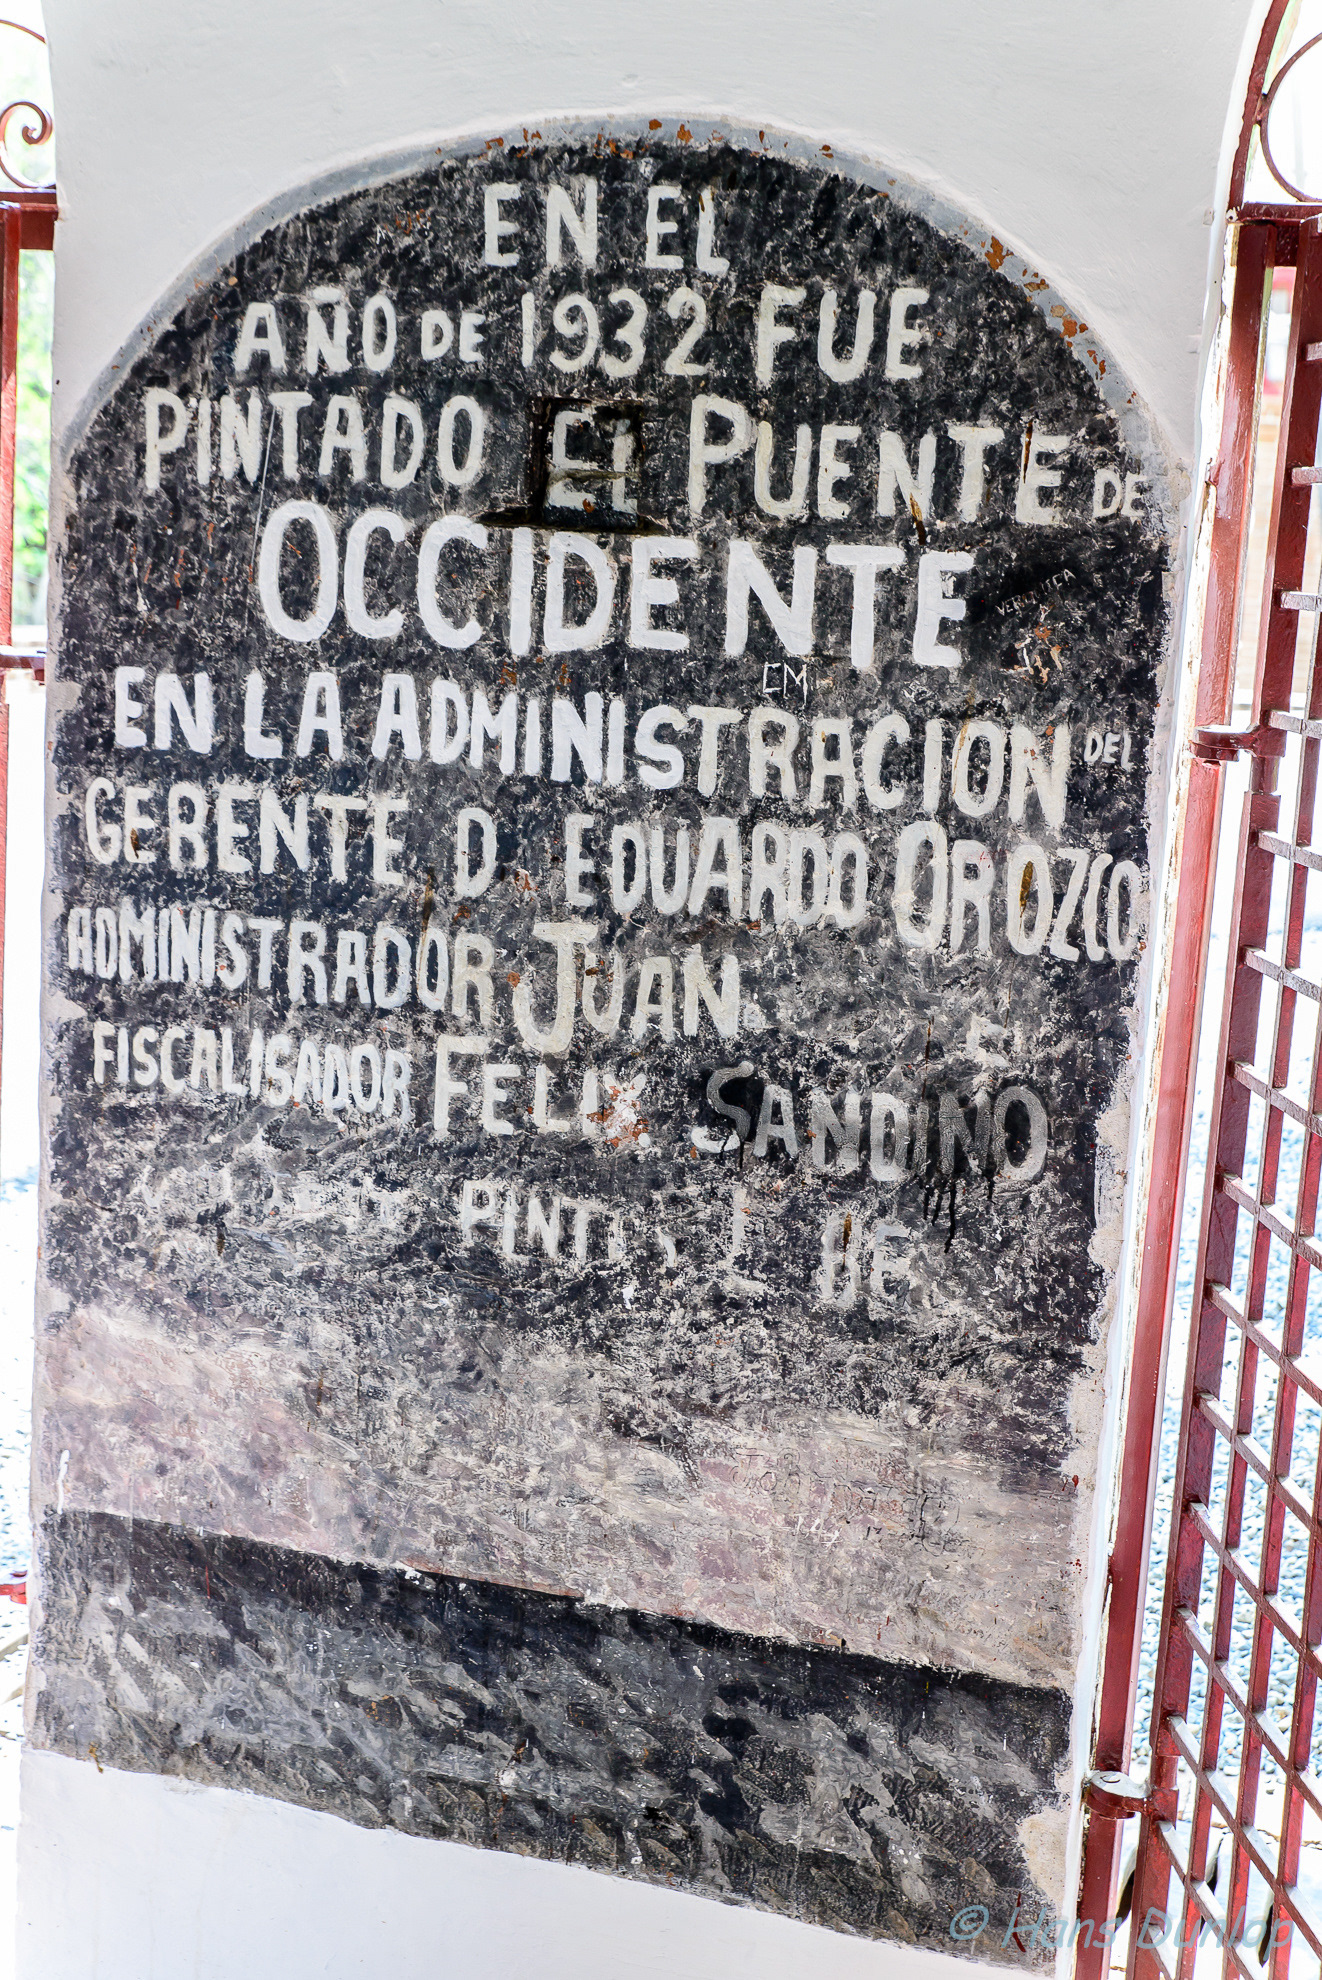 EN EL
AÑO DE 1932 FUE
PINTADO EL PUENTE DE
OCCIDENTE
EN LA ADMINISTRACION DEL
GERENTE D. EDUARDO OROZCO
ADMINISTRADOR JUAN
FISCALISADOR FELIX SANDINO
CM
© Hans Dunlop